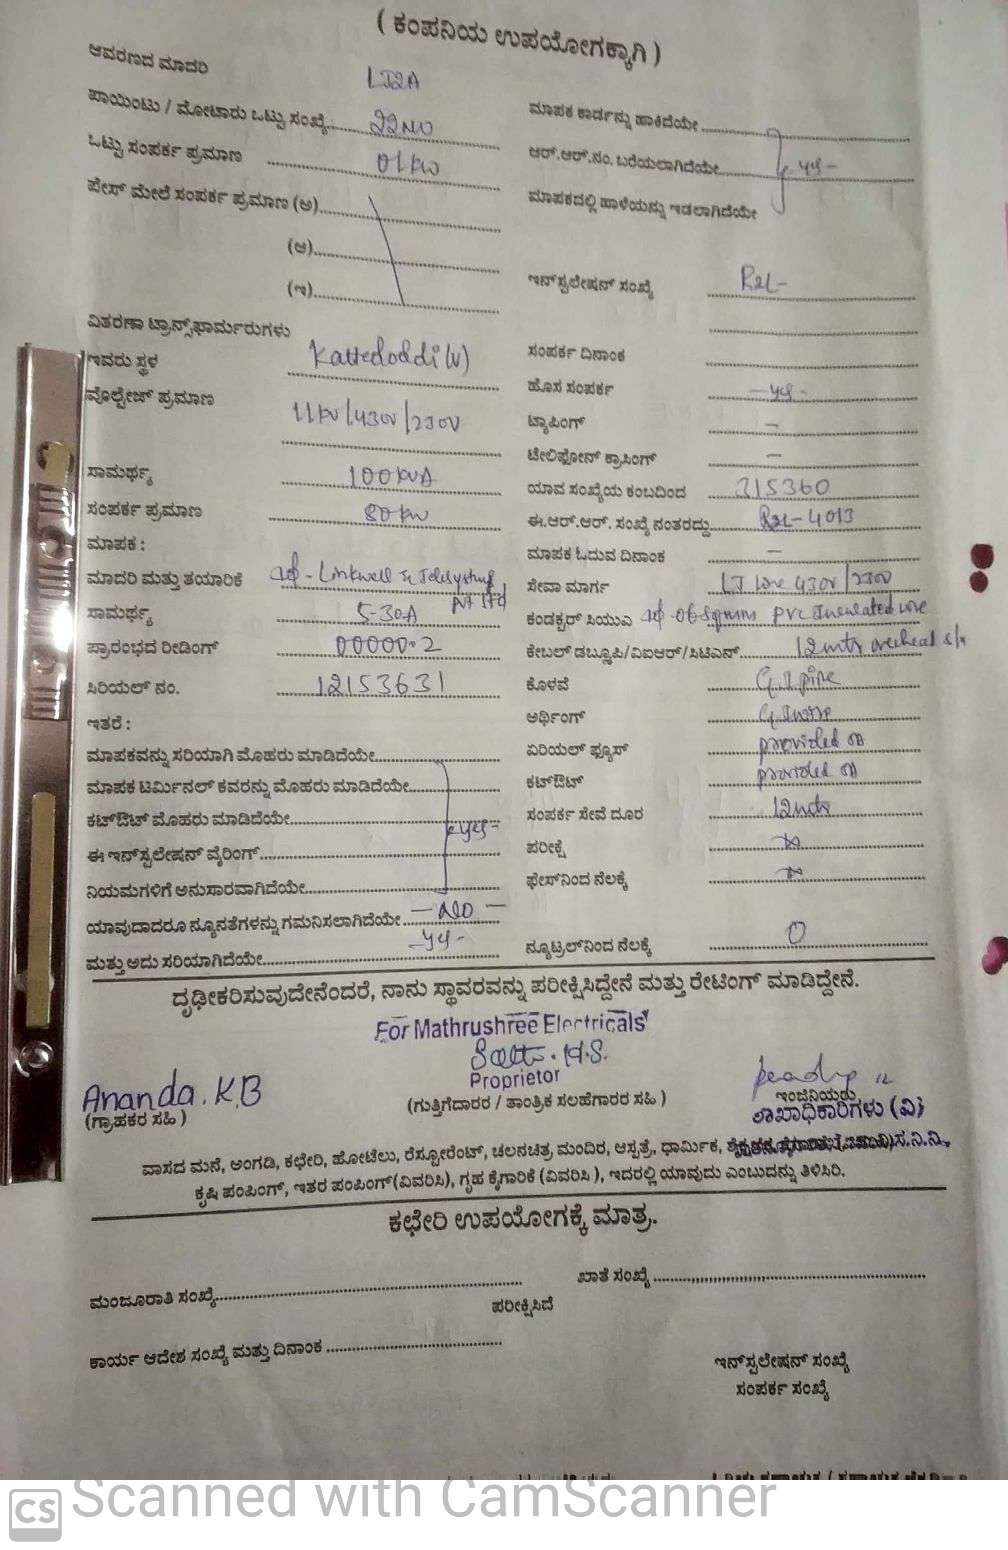 ( ಕಂಪನಿಯ ಉಪಯೋಗಕ್ಕಾಗಿ )
ಆವರಣದ ಮಾದರಿ LT2A
ಪಾಯಿಂಟು / ಮೋಟಾರು ಒಟ್ಟು ಸಂಖ್ಯೆ 22 NO
ಒಟ್ಟು ಸಂಪರ್ಕ ಪ್ರಮಾಣ 01 KW
ಪೇಸ್ ಮೇಲೆ ಸಂಪರ್ಕ ಪ್ರಮಾಣ (ಅ)
(ಆ)
(ಇ)
ವಿತರಣಾ ಟ್ರಾನ್ಸ್‌ಫಾರ್ಮರುಗಳು
ಇವರು ಸ್ಥಳ Kattedoddi (V)
ವೋಲ್ಟೇಜ್ ಪ್ರಮಾಣ 11KV/430V/230V
ಸಾಮರ್ಥ್ಯ 100 KVA
ಸಂಪರ್ಕ ಪ್ರಮಾಣ 80 KW
ಮಾಪಕ :
ಮಾದರಿ ಮತ್ತು ತಯಾರಿಕೆ 1ф - Linkwell Telesystms Pvt Ltd
ಸಾಮರ್ಥ್ಯ 5-30A
ಪ್ರಾರಂಭದ ರೀಡಿಂಗ್ 00000.2
ಸಿರಿಯಲ್ ನಂ. 12153631
ಇತರೆ :
ಮಾಪಕವನ್ನು ಸರಿಯಾಗಿ ಮೊಹರು ಮಾಡಿದೆಯೇ
ಮಾಪಕ ಟರ್ಮಿನಲ್ ಕವರನ್ನು ಮೊಹರು ಮಾಡಿದೆಯೇ
ಕಟ್‌ಔಟ್ ಮೊಹರು ಮಾಡಿದೆಯೇ yes -
ಈ ಇನ್‌ಸ್ಟಲೇಷನ್ ವೈರಿಂಗ್
ನಿಯಮಗಳಿಗೆ ಅನುಸಾರವಾಗಿದೆಯೇ
ಯಾವುದಾದರೂ ನ್ಯೂನತೆಗಳನ್ನು ಗಮನಿಸಲಾಗಿದೆಯೇ - NO -
ಮತ್ತು ಅದು ಸರಿಯಾಗಿದೆಯೇ - yes -
ಮಾಪಕ ಕಾರ್ಡನ್ನು ಹಾಕಿದೆಯೇ
ಆರ್.ಆರ್.ನಂ. ಬರೆಯಲಾಗಿದೆಯೇ yes -
ಮಾಪಕದಲ್ಲಿ ಹಾಳೆಯನ್ನು ಇಡಲಾಗಿದೆಯೇ
ಇನ್‌ಸ್ಟಲೇಷನ್ ಸಂಖ್ಯೆ
ಸಂಪರ್ಕ ದಿನಾಂಕ
ಹೊಸ ಸಂಪರ್ಕ - yes -
ಟ್ಯಾಪಿಂಗ್ -
ಟೇಲಿಫೋನ್ ಕ್ರಾಸಿಂಗ್ -
ಯಾವ ಸಂಖ್ಯೆಯ ಕಂಬದಿಂದ 215360
ಈ.ಆರ್.ಆರ್. ಸಂಖ್ಯೆ ನಂತರದ್ದು 4013
ಮಾಪಕ ಓದುವ ದಿನಾಂಕ -
ಸೇವಾ ಮಾರ್ಗ LT line 430V/230V
ಕಂಡಕ್ಟರ್ ಸಿಯುಎ 1ф-06 Sqmms PVC Insulated wire
ಕೇಬಲ್ ಡಬ್ಲ್ಯೂಪಿ/ವಿಐಆರ್/ಸಿಟಿಎನ್ 12 mtr overhead
ಕೊಳವೆ G.I pipe
ಅರ್ಥಿಂಗ್ G.I wire
ಏರಿಯಲ್ ಫ್ಯೂಸ್ provided
ಕಟ್‌ಔಟ್ provided
ಸಂಪರ್ಕ ಸೇವೆ ದೂರ 12 mtr
ಪರೀಕ್ಷೆ
ಫೇಸ್‌ನಿಂದ ನೆಲಕ್ಕೆ
ನ್ಯೂಟ್ರಲ್‌ನಿಂದ ನೆಲಕ್ಕೆ 0
ದೃಢೀಕರಿಸುವುದೇನೆಂದರೆ, ನಾನು ಸ್ಥಾವರವನ್ನು ಪರೀಕ್ಷಿಸಿದ್ದೇನೆ ಮತ್ತು ರೇಟಿಂಗ್ ಮಾಡಿದ್ದೇನೆ.
For Mathrushree Electricals
Proprietor
Ananda. K.B
(ಗ್ರಾಹಕರ ಸಹಿ )
(ಗುತ್ತಿಗೆದಾರರ / ತಾಂತ್ರಿಕ ಸಲಹೆಗಾರರ ಸಹಿ )
ಇಂಜಿನಿಯರು
ಶಾಖಾಧಿಕಾರಿಗಳು (ವಿ)
ವಾಸದ ಮನೆ, ಅಂಗಡಿ, ಕಛೇರಿ, ಹೋಟೆಲು, ರೆಸ್ಟೋರೆಂಟ್, ಚಲನಚಿತ್ರ ಮಂದಿರ, ಆಸ್ಪತ್ರೆ, ಧಾರ್ಮಿಕ,
ಕೃಷಿ ಪಂಪಿಂಗ್, ಇತರ ಪಂಪಿಂಗ್(ವಿವರಿಸಿ), ಗೃಹ ಕೈಗಾರಿಕೆ (ವಿವರಿಸಿ ), ಇದರಲ್ಲಿ ಯಾವುದು ಎಂಬುದನ್ನು ತಿಳಿಸಿರಿ.
ಕಛೇರಿ ಉಪಯೋಗಕ್ಕೆ ಮಾತ್ರ.
ಮಂಜೂರಾತಿ ಸಂಖ್ಯೆ
ಖಾತೆ ಸಂಖ್ಯೆ
ಪರೀಕ್ಷಿಸಿದೆ
ಕಾರ್ಯ ಆದೇಶ ಸಂಖ್ಯೆ ಮತ್ತು ದಿನಾಂಕ
ಇನ್‌ಸ್ಟಲೇಷನ್ ಸಂಖ್ಯೆ
ಸಂಪರ್ಕ ಸಂಖ್ಯೆ
CS Scanned with CamScanner